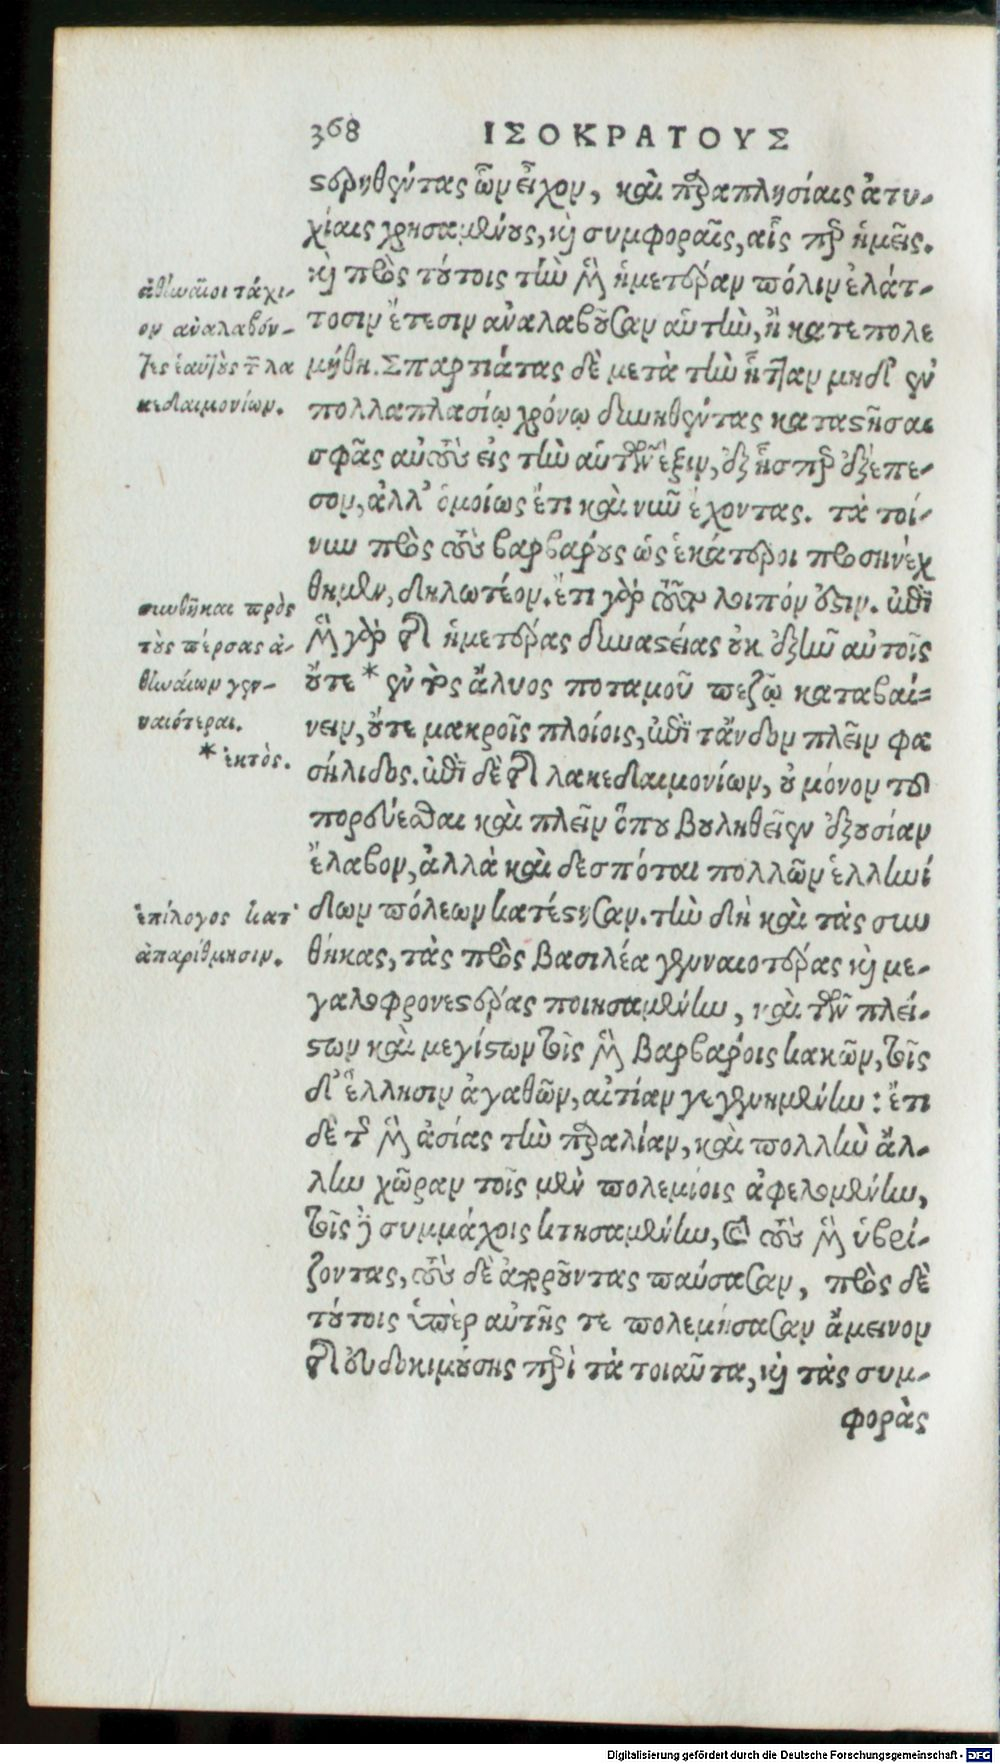 368 ΙΣΟΚΡΑΤΟΥΣ
στερηθέντας ὧν εἶχον, καὶ παραπλησίαις ἀτυ-
χίαις χρησαμένους, καὶ συμφοραῖς, αἷς περ ἡμεῖς.
καὶ πρὸς τούτοις τὴν μὲν ἡμετέραν πόλιν ἐλάτ-
τοσιν ἔτεσιν ἀναλαβοῦσαν αὑτὴν, ἢ κατεπολε
μήθη. Σπαρτιάτας δὲ μετὰ τὴν ἧτταν μηδ' ἐν
πολλαπλασίῳ χρόνῳ δυνηθέντας καταστῆσαι
σφᾶς αὐτοὺς εἰς τὴν αὑτὴν ἕξιν, ἐξ ἧσπερ ἐξέπε-
σον, ἀλλ' ὁμοίως ἔτι καὶ νῦν ἔχοντας. τὰ τοί-
νυν πρὸς τοὺς βαρβάρους ὡς ἑκάτεροι προσηνέχ
θημεν, δηλωτέον. ἔτι γὰρ τοῦτο λοιπόν ἐστιν. ἐπὶ
μὲν γὰρ τῆς ἡμετέρας δυναστείας οὐκ ἐξῆν αὐτοῖς
οὔτε * ἐν τὸς ἅλυος ποταμοῦ πεζῷ καταβαί-
νειν, οὔτε μακροῖς πλοίοις, ἐπὶ τἄνδον πλεῖν φα
σήλιδος. ἐπὶ δὲ τῆς λακεδαιμονίων, οὐ μόνον τοῦ
πορεύεσθαι καὶ πλεῖν ὅπου βουληθεῖεν ἐξουσίαν
ἔλαβον, ἀλλὰ καὶ δεσπόται πολλῶν ἑλληνί
δων πόλεων κατέστησαν. τὴν δὴ καὶ τὰς συν
θήκας, τὰς πρὸς βασιλέα γενναιοτέρας καὶ με-
γαλοφρονεστέρας ποιησαμένην, καὶ τῶν πλεί-
στων καὶ μεγίστων τοῖς μὲν βαρβάροις κακῶν, τοῖς
δ' ἕλλησιν ἀγαθῶν, αἰτίαν γεγενημένην: ἔτι
δὲ τῆς μὲν ἀσίας τὴν παραλίαν, καὶ πολλὴν ἄλ-
λην χῶραν τοῖς μὲν πολεμίοις ἀφελομένην,
τοῖς δὲ συμμάχοις κτησαμένην, καὶ τοὺς μὲν ὑβρί-
ζοντας, τοὺς δὲ ἀποροῦντας παύσασαν, πρὸς δὲ
τούτοις ὑπὲρ αὐτῆς τε πολεμήσασαν ἄμεινον
τῆς εὐδοκιμούσης περὶ τὰ τοιαῦτα, καὶ τὰς συμ-
φορὰς
ἀθηναῖοι τάχι-
ον ἀναλαβόν-
τες ἑαυτοὺς τῶν λα
κεδαιμονίων.
συνθῆκαι πρὸς
τοὺς πέρσας ἀ-
θηναίων γεν-
ναιότεραι.
* ἐκτὸς.
ἐπίλογος κατ'
ἀπαρίθμησιν.
Digitalisierung gefördert durch die Deutsche Forschungsgemeinschaft - DFG